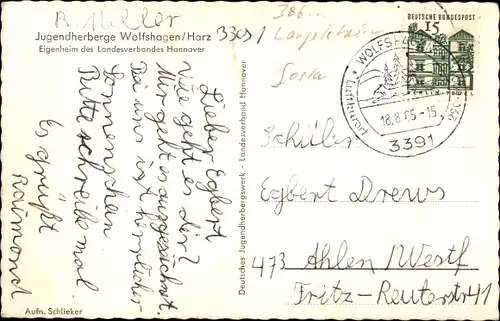 R. Müller
Jugendherberge Wolfshagen/Harz
Eigenheim des Landesverbandes Hannover
3391
Lieber Egbert
Wie geht es dir?
Mir geht es ausgezeichnet.
Bei uns ist herrlicher
Sonnenschein.
Bitte schreibe mal.
Es grüßt
Raimond
Aufn. Schlieker
Deutsches Jugendherbergswerk · Landesverband Hannover
DEUTSCHE BUNDESPOST
15
BERLIN
18.8.65-15
3391
Schüler
Egbert Drews
473 Ahlen/Westf
Fritz-Reuterstr 41